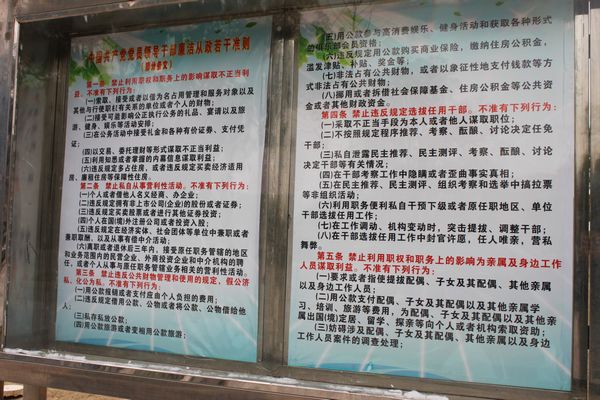 中国共产党党员领导干部廉洁从政若干准则
(部分条文)
第一条 禁止利用职权和职务上的影响谋取不正当利
益。不准有下列行为:
(一)索取、接受或者以借为名占用管理和服务对象以及
其他与行使职权有关系的单位或者个人的财物;
(二)接受可能影响公正执行公务的礼品、宴请以及旅
游、健身、娱乐等活动安排;
(三)在公务活动中接受礼金和各种有价证券、支付凭
证;
(四)以交易、委托理财等形式谋取不正当利益;
(五)利用知悉或者掌握的内幕信息谋取利益;
(六)违反规定多占住房,或者违反规定买卖经济适用
房、廉租住房等保障性住房。
第二条 禁止私自从事营利性活动。不准有下列行为:
(一)个人或者借他人名义经商、办企业;
(二)违反规定拥有非上市公司(企业)的股份或者证券;
(三)违反规定买卖股票或者进行其他证券投资;
(四)个人在国(境)外注册公司或者投资入股;
(五)违反规定在经济实体、社会团体等单位中兼职或者
兼职取酬,以及从事有偿中介活动;
(六)离职或者退休后三年内,接受原任职务管辖的地区
和业务范围内的民营企业、外商投资企业和中介机构的聘
任,或者个人从事与原任职务管辖业务相关的营利性活动。
第三条 禁止违反公共财物管理和使用的规定,假公济
私、化公为私。不准有下列行为:
(一)用公款报销或者支付应由个人负担的费用;
(二)违反规定借用公款、公物或者将公款、公物借给他
人;
(三)私存私放公款;
(四)用公款旅游或者变相用公款旅游;
(五)用公款参与高消费娱乐、健身活动和获取各种形式
的俱乐部会员资格;
(六)违反规定用公款购买商业保险,缴纳住房公积金,
滥发津贴、补贴、奖金等;
(七)非法占有公共财物,或者以象征性地支付钱款等方
式非法占有公共财物;
(八)挪用或者拆借社会保障基金、住房公积金等公共资
金或者其他财政资金。
第四条 禁止违反规定选拔任用干部。不准有下列行为:
(一)采取不正当手段为本人或者他人谋取职位;
(二)不按照规定程序推荐、考察、酝酿、讨论决定任免
干部;
(三)私自泄露民主推荐、民主测评、考察、酝酿、讨论
决定干部等有关情况;
(四)在干部考察工作中隐瞒或者歪曲事实真相;
(五)在民主推荐、民主测评、组织考察和选举中搞拉票
等非组织活动;
(六)利用职务便利私自干预下级或者原任职地区、单位
干部选拔任用工作;
(七)在工作调动、机构变动时,突击提拔、调整干部;
(八)在干部选拔任用工作中封官许愿,任人唯亲,营私
舞弊。
第五条 禁止利用职权和职务上的影响为亲属及身边工作
人员谋取利益。不准有下列行为:
(一)要求或者指使提拔配偶、子女及其配偶、其他亲属
以及身边工作人员;
(二)用公款支付配偶、子女及其配偶以及其他亲属学
习、培训、旅游等费用,为配偶、子女及其配偶以及其他亲
属出国(境)定居、留学、探亲等向个人或者机构索取资助;
(三)妨碍涉及配偶、子女及其配偶、其他亲属以及身边
工作人员案件的调查处理;